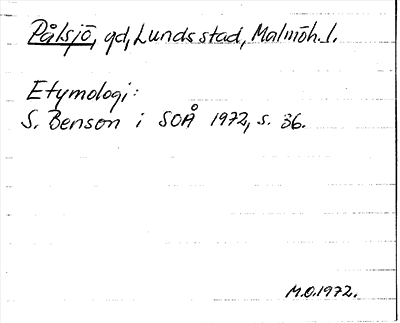 Pålsjö, gd, Lunds stad, Malmöh. l.
Etymologi:
S. Benson i SOÅ 1972, s. 36.
M.O.1972.